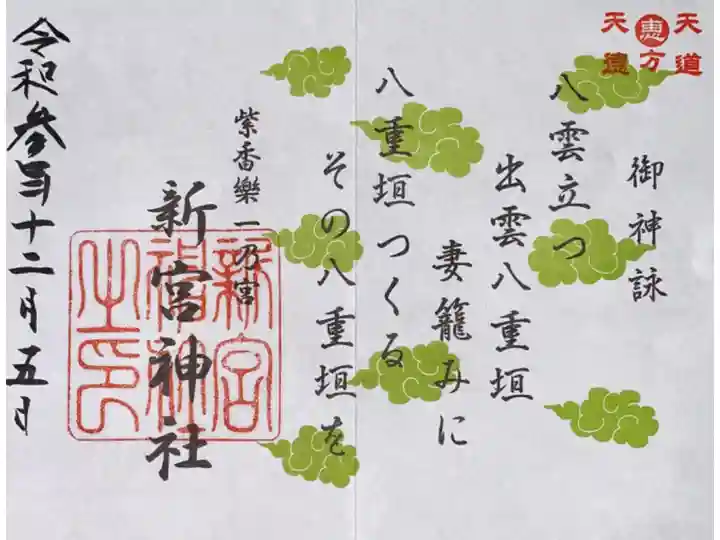 天道
惠方
天
御神詠
八雲立つ
出雲八重垣
妻籠みに
八重垣つくる
その八重垣を
紫香樂一乃宮
新宮神社
新宮
神社
之印
令和参年十二月五日